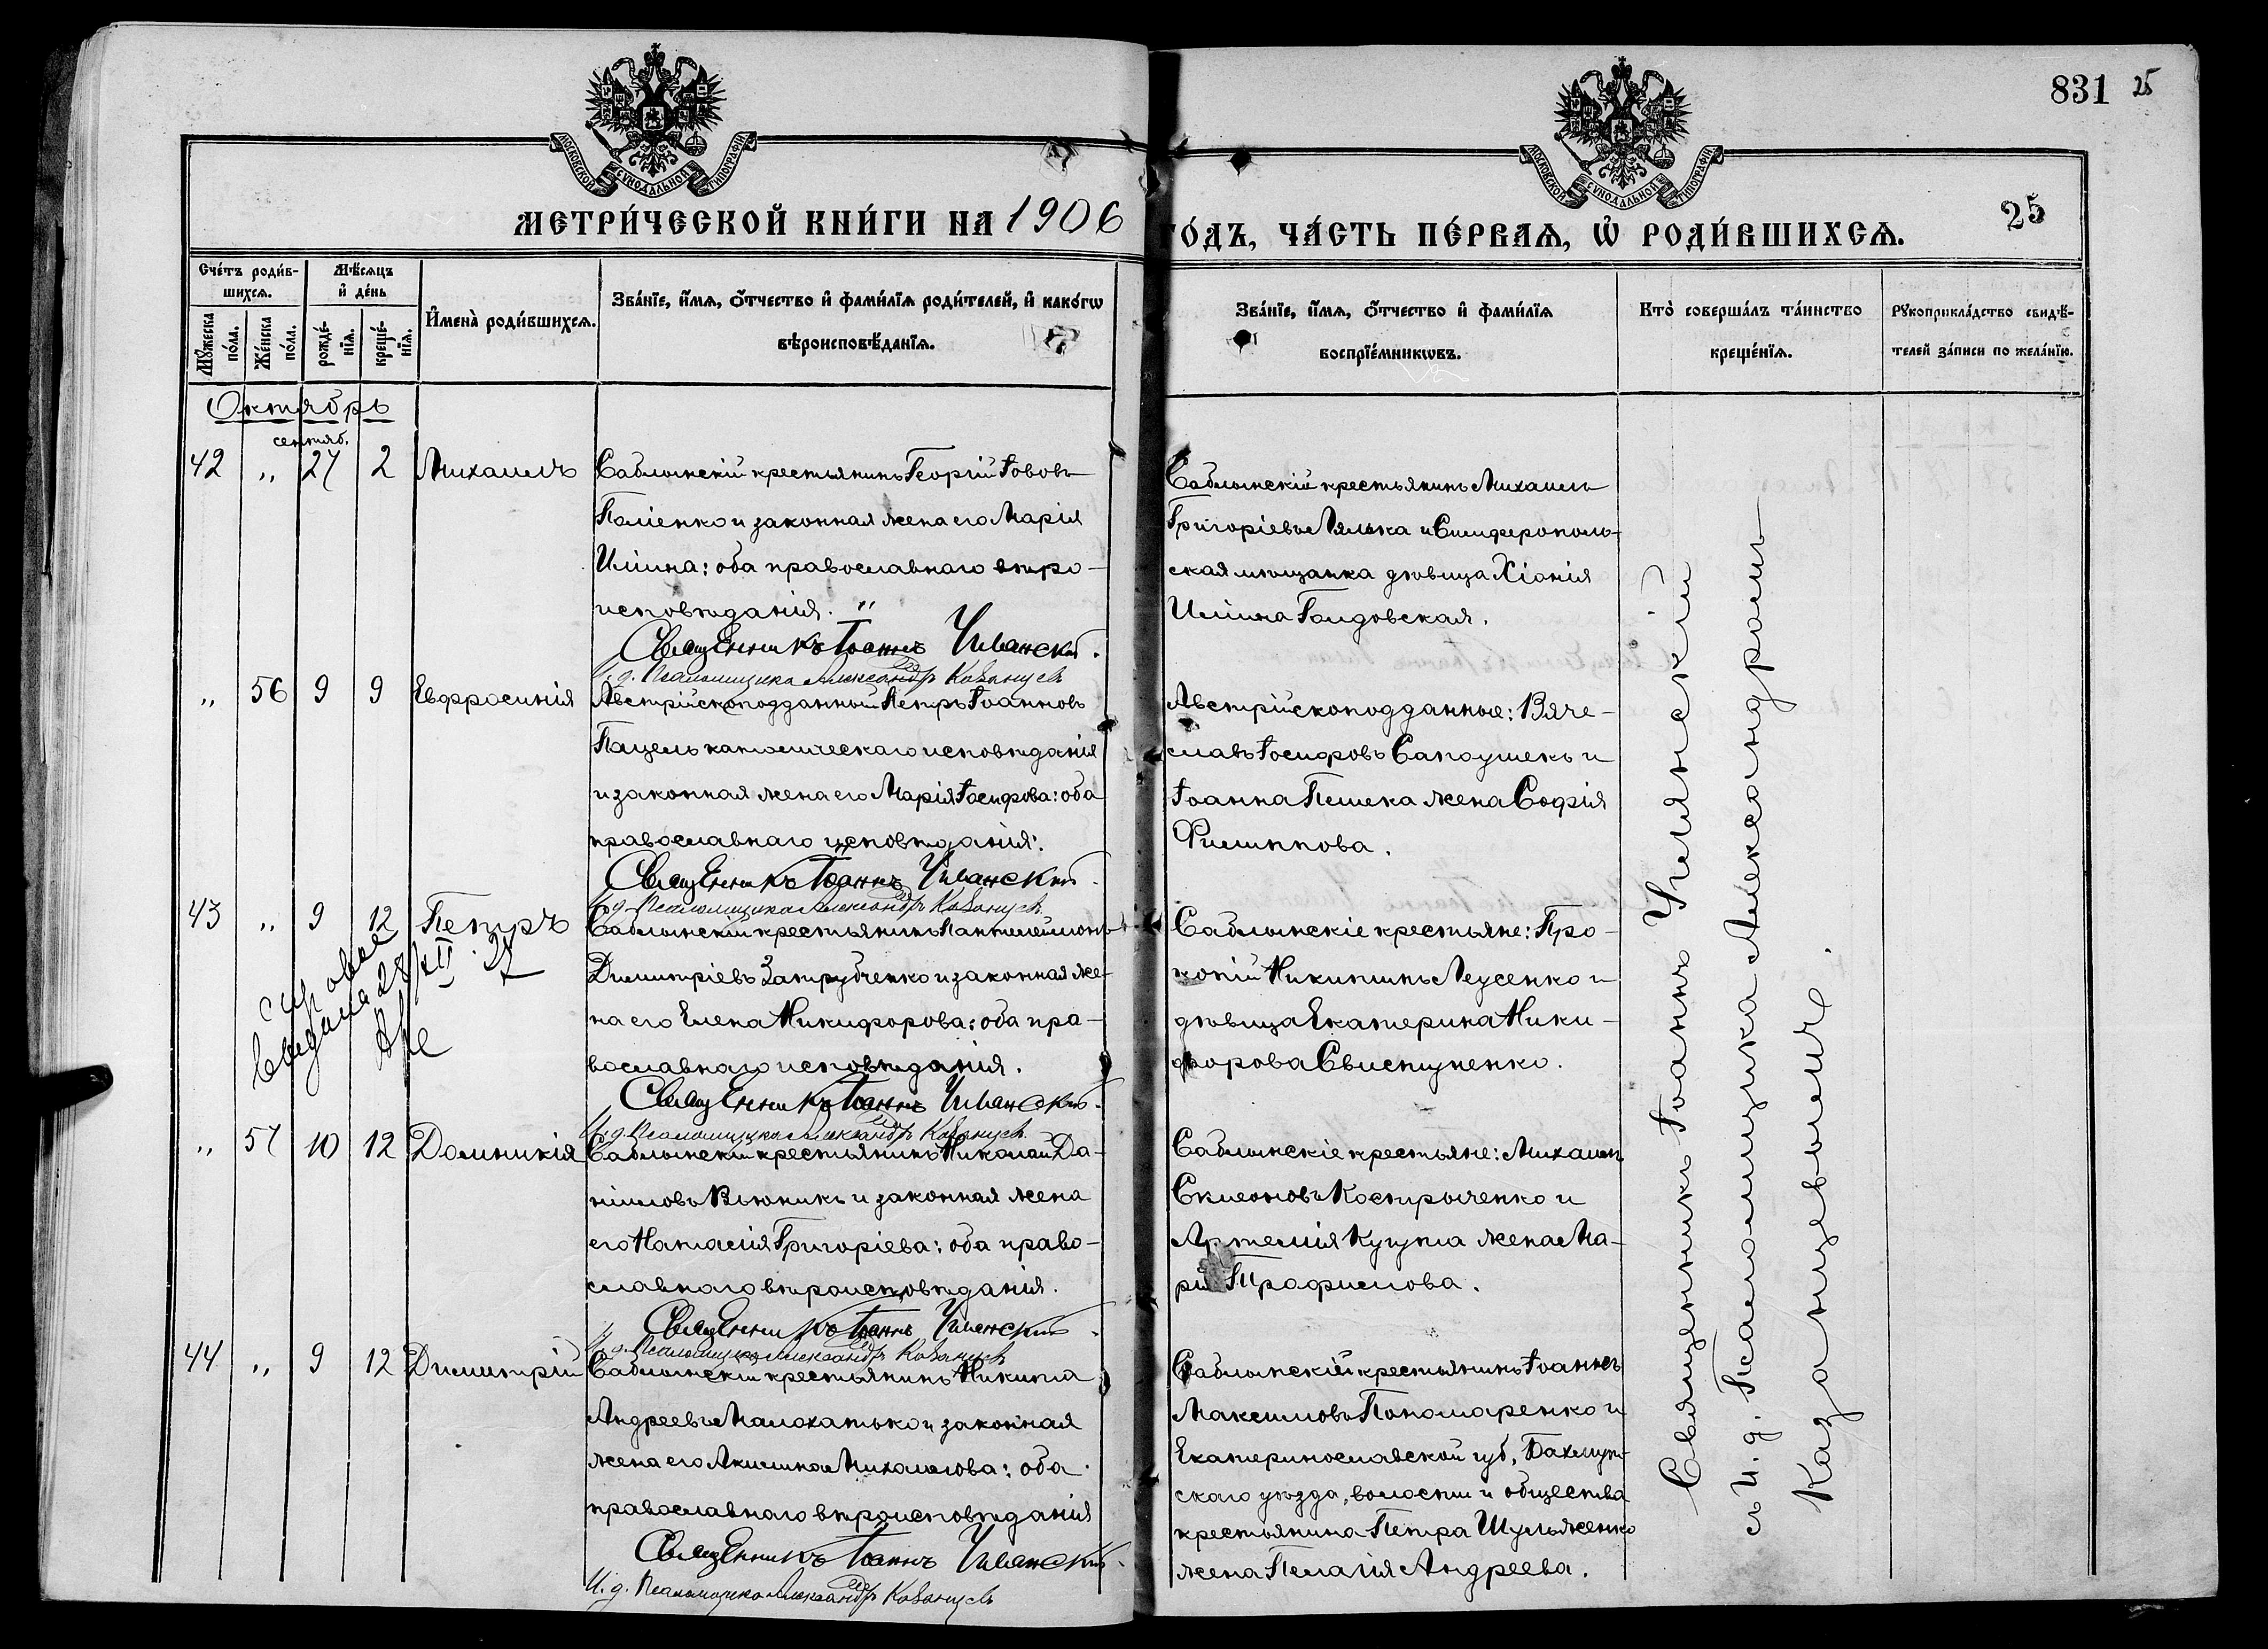 831 25
МОСКОВСКОЙ СУНОДАЛЬНОЙ ТИПОГРАФІИ
МОСКОВСКОЙ СУНОДАЛЬНОЙ ТИПОГРАФІИ
МЕТРИ́ЧЕСКОЙ КНИ́ГИ НА 1906
ГО́ДЪ, ЧА́СТЬ ПЕ́РВАѦ, Ѡ РОДИ́ВШИХСѦ.
25
Сче́тъ роди́в-
шихсѧ.
Мѣ́сѧцъ
и҆ де́нь
Му́жеска
по́ла.
Же́нска
по́ла.
рожде́-
нїѧ.
креще́-
нїѧ.
И҆мена̀ роди́вшихсѧ.
Зва́нїе, и҆́мѧ, ѻ҆́тчество и҆ фами́лїѧ роди́телей, и҆ како́гѡ
вѣроисповѣ́данїѧ.
Зва́нїе, и҆́мѧ, ѻ҆́тчество и҆ фами́лїѧ
воспрїе́мникѡвъ.
Кто̀ соверша́лъ та́инство
креще́нїѧ.
Рꙋкоприкла́дство свидѣ́-
телей за́писи по жела́нїю.
Октябрь
сентяб.
42 " 27 2 Михаилъ
Саблынскій крестьянинъ Георгій Іововъ
Паліенко и законная жена его Марія
Ильина: оба православнаго вѣро-
исповѣданія. "
Священникъ Іоаннъ Чилянскій.
И. д. Псаломщика Александръ Казанцевъ
Саблынскій крестьянинъ Михаилъ
Григоріевъ Лялька и Симферополь-
ская мѣщанка дѣвица Хіонія
Ильина Гаидовская.
" 56 9 9 Евфросинія
Австрійскоподданный Петръ Іоанновъ
Пацель католическаго исповѣданія
и законная жена его Марія Іосифова: оба
православнаго исповѣданія.
Священникъ Іоаннъ Чилянскій.
И. д. Псаломщика Александръ Казанцевъ
Австрійскоподданные: Вяче-
славъ Іосифовъ Сапоушекъ и
Іоанна Пешека жена Софія
Филиппова.
43 " 9 12 Петръ
выдана 28/XII 27
Саблынскій крестьянинъ Пантелеймонъ
Димитріевъ Затрубченко и законная же-
на его Елена Никифорова: оба пра-
вославнаго исповѣданія.
Священникъ Іоаннъ Чилянскій.
И. д. Псаломщика Александръ Казанцевъ
Саблынскіе крестьяне: Про-
копій Никитинъ Леусенко и
дѣвица Екатерина Ники-
форова Свистуненко.
" 57 10 12 Домникія
Саблынскій крестьянинъ Николай Да-
ніиловъ Вьюникъ и законная жена
его Наталія Григоріева: оба право-
славнаго вѣроисповѣданія.
Священникъ Іоаннъ Чилянскій.
И. д. Псаломщика Александръ Казанцевъ
Саблынскіе крестьяне: Михаилъ
Симеоновъ Костырченко и
Артемія Кугута жена Ма-
рія Трофимова.
44 " 9 12 Димитрій
Саблынскій крестьянинъ Никита
Андреевъ Малохатько и законная
жена его Акилина Михайлова: оба
православнаго вѣроисповѣданія
Священникъ Іоаннъ Чилянскій.
И. д. Псаломщика Александръ Казанцевъ
Саблынскій крестьянинъ Іоаннъ
Максимовъ Пономаренко и
Екатеринославской губ., Бахмут-
скаго уѣзда, волости и общества
крестьянина Петра Шульженко
жена Пелагія Андреева.
Священникъ Іоаннъ Чилянскій
съ И. д. Псаломщика Александромъ
Казанцевымъ.